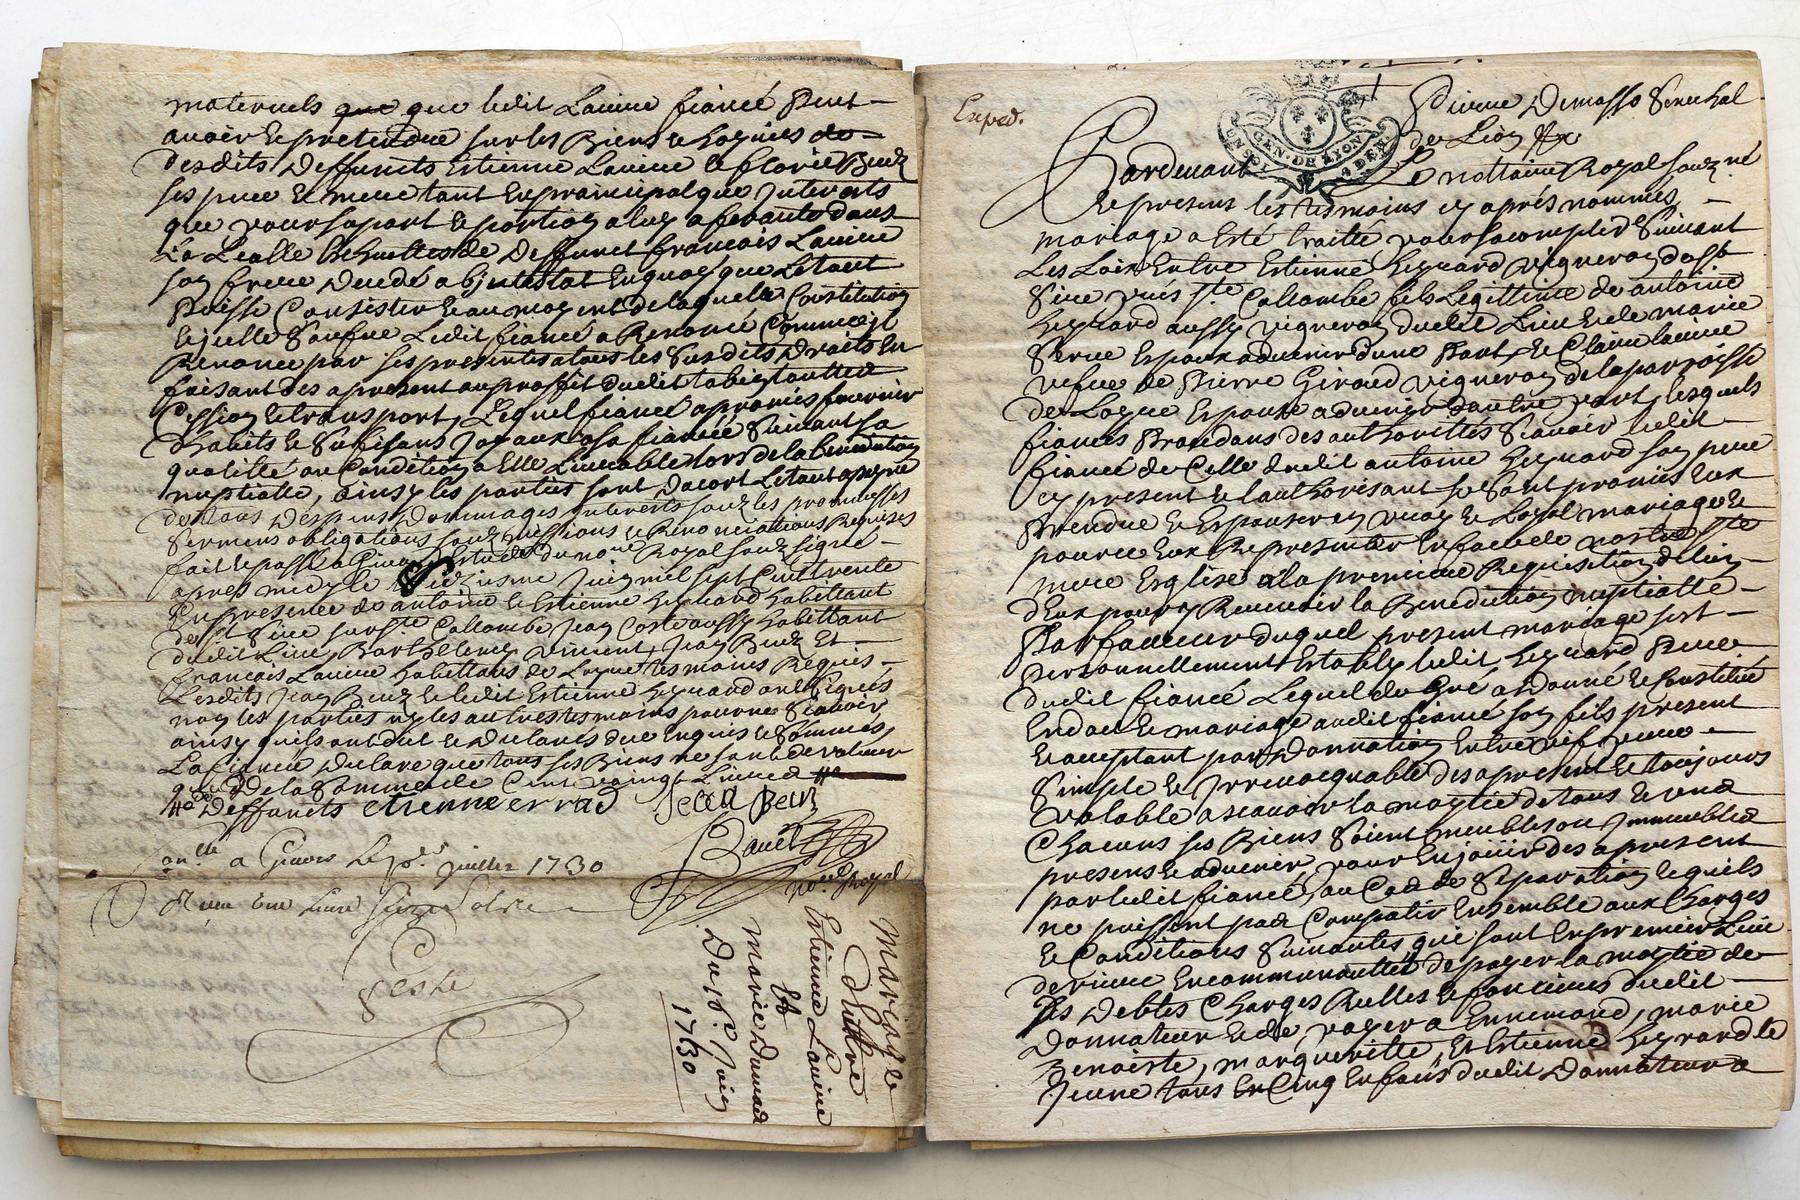 maternels que que ledit Laviue fiancé Peut
avoir et pretendre sur les Biens et hoyries de
desdits Deffuncts Estienne Laviue et Florie Benz
ses pere et mere tant En principal que Interests
que pour sa part et portion a luy aferante dans
La de Deffunct francois Laviue
son frere decedé abjntestat En quoy que le tout
Puisse Consister et au moyent de laquelle Constitution
ledit fiancé a Renoncé Comme il
Renonce par ses presentes a tous les Susdits Droits En
faisant des apresent au proffit dudit toutte
Cession et transport, Lequel fiancé a promis fournir
D'habits et Joyaux a sa fiancée Suivant sa
qualitté ou Condition a Elle Livrable lors de la benediction
nuptialle, ainsy les parties sont dacort Le tout a peyne
de tous Despens Dommages interests souz les promesses
Sermens obligations souz missions et Renonciations Requises
fait et passé a Givors Estude du no.re Royal souz signé
apres midy le Juin mil sept Cent trente
En presence de antoine et Estienne heyrard habittant
de St Sire sur Ste Collombe Jean Coste aussy habittant
dudit Lieu, Barthelemy Vincent, Jean Benz Et
francois Laviue habittans de Loyre tesmoins Requis
Lesdits Jean Benz et ledit Estienne heyrard ont Signés
non les parties ny les autres tesmoins pour ne Scavoir
ainsy quils ont dit et Declarés de ce Enquis et Sommés,
La fiancée declare que tous ses Biens ne sont de valeur
que de la Somme de Cent vaingt Livres
Deffuncts etienne errad Jean Benz
no.re Royal
a Givors Le juillet 1730
Reçu une Livre
Mariage
D'entre
Estienne Laviue
Et
Marie Donnad
Du Juin
1730
Exped.
GEN. DE LYON
Pierre Demasso Senechal
de Lion
Pardevant Le nottaire Royal souz.né
Et present les tesmoins cy aprés nommés
mariage a Esté traitté pour s'acomplir Suivant
Les Loix Entre Estienne heyrard vigneron de St
Sire prés Ste Collombe fils Legittime de antoine
heyrard aussy vigneron dudit Lieu et de marie
Serve Espoux advenir d'une Part, Et Claire Laviue
vefue de Pierre Giraud vigneron de la parroisse
de Loyre Espouze advenir d'autre part, lesquels
fiancés Procedans des authorittés Scavoir ledit
fiancé de Celle dudit antoine heyrard son pere
cy present et l'authorisant se Sont promis Eux
Prendre et Espouser en vray et Loyal mariage et
pour ce Eux Representer En face de nostre Ste
mere Esglise a la premiere Requisition de l'un
d'Eux pour y Recevoir la Benediction nuptialle
Par faveur duquel present mariage s'est
personnellement Estably ledit heyrard Pere
dudit fiancé Lequel de Gré a Donné et Constitué
En dot et mariage audit fiancé son fils present
Et acceptant par Donnation Entre vif pure
Simple et Irrevocquable des apresent et toujours
valable a scavoir la moytié de tous et un
Chacuns ses Biens Soient meubles ou Immeubles
presens et advenir, pour En joüir des apresent
par ledit fiancé, au Cas de Separation lequels
ne puissent pas Compatir Ensemble aux Charges
et Conditions Suivantes, qui sont En premier Lieu
de vivre En communautté de payer la moytié de
ses Debtes Charges Reelles et foncieres dudit
Donnateur et de payer a Ennemond, marie
Benoiste, margueritte, Et Estienne heyrard le
Jeune tous En Cinq Enfans dudit Donnateur a